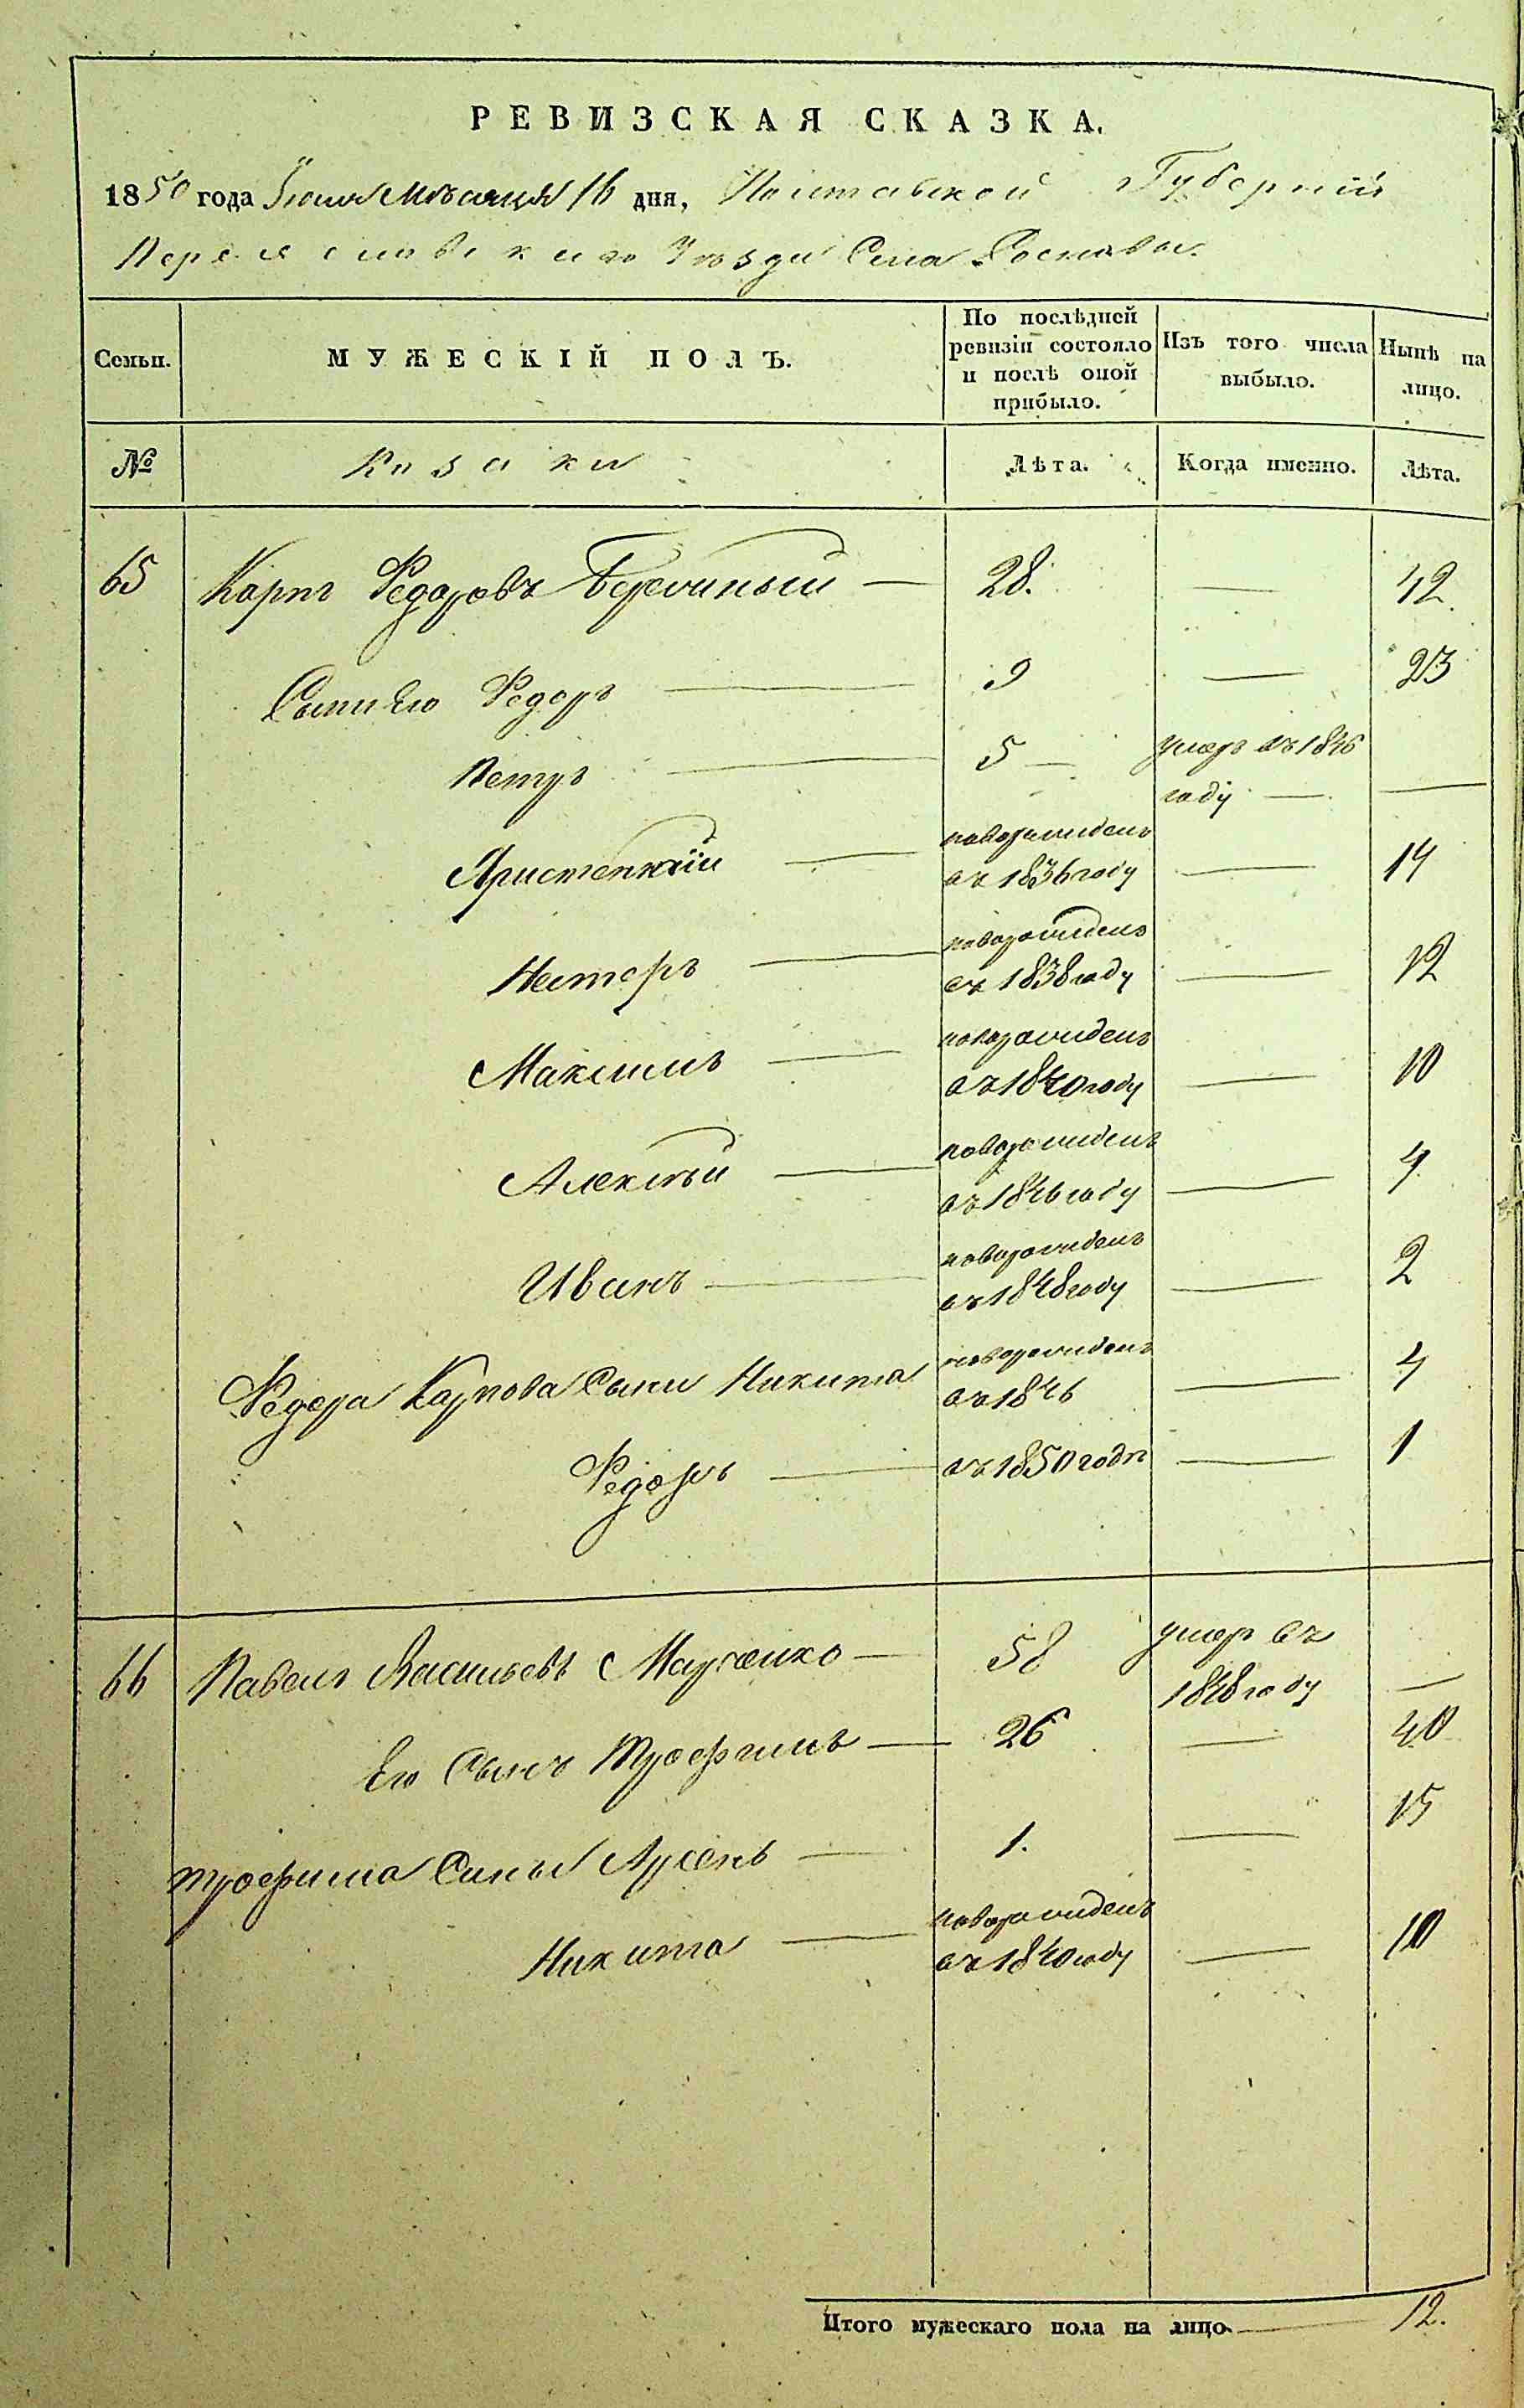 РЕВИЗСКАЯ СКАЗКА.
1850 года Іюля Мѣсяця 16 дня, Полтавской Губерніи
Переяславскаго Уѣзда Села
Семьи. МУЖЕСКІЙ ПОЛЪ. По послѣдней ревизіи состояло и послѣ оной прибыло. Изъ того числа выбыло. Нынѣ на лицо.
№ Козаки Лѣта. Когда именно. Лѣта.
65 Карпъ Федоровъ — 28. — 42.
Сыни Его Федоръ — 9 — 23
Петръ — 5 — умеръ въ 1846
году — —
новорожденъ
— въ 1836 году — 14
новорожденъ
Несторъ — въ 1838 году — 12
новорожденъ
Максимъ — въ 1840 году — 10
новорожденъ
Алексѣй — въ 1846 году — 4
новорожденъ
Иванъ — въ 1848 году — 2
новорожденъ
Федора Карпова Сыни Никита въ 1846 — 4
Федоръ — въ 1850 годѣ — 1
66 Павелъ Васильевъ Марченко — 58 умеръ въ
1848 году —
Его Сынъ Трофимъ — 26 — 40
Трофима Сины Арсенъ — 1. — 15
новорожденъ
Никита — въ 1840 году — 10
Итого мужескаго пола на лицо — 12.